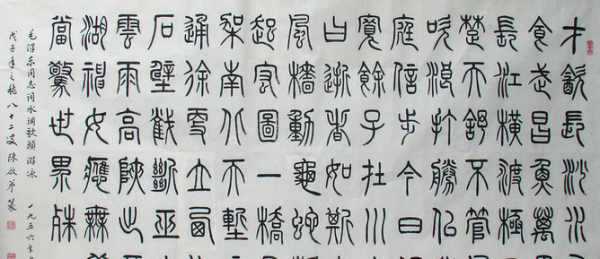 才飲長沙水
食武昌魚萬
長江橫渡極
楚天舒不管
吹浪打勝似
庭信步今日
寬餘子在川
曰逝者如斯
風檣動龜蛇
起宏圖一橋
架南北天塹
通途更立西
石壁截斷巫
雲雨高峽出
湖神女應無
當驚世界殊
毛澤东同志词水调歌頭 游泳 一九五六年
戊子年之秋八十二叟陳 篆